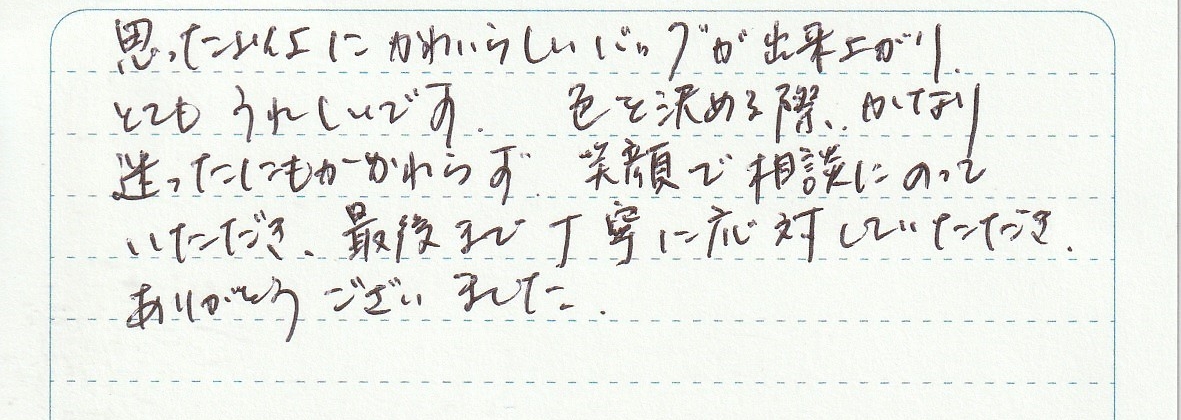 思った以上に かわいらしいバッグが出来上がり、
とても うれしいです。 色を決める際、かなり
迷ったにもかかわらず、笑顔で相談にのって
いただき、最後まで丁寧に応対していただき、
ありがとうございました。